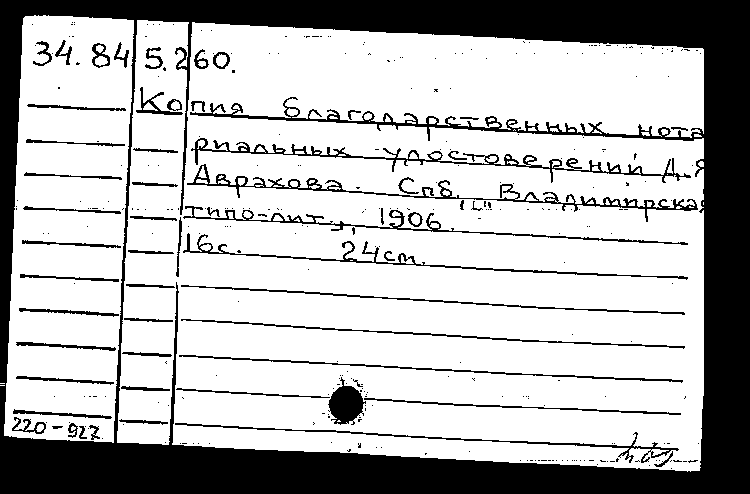 34.84 5.260.
Копия благодарственных нота
риальных удостоверений Д.Я
Аврахова. Спб., "Владимирская
типо-лит.", 1906.
16с. 24см.
220-927